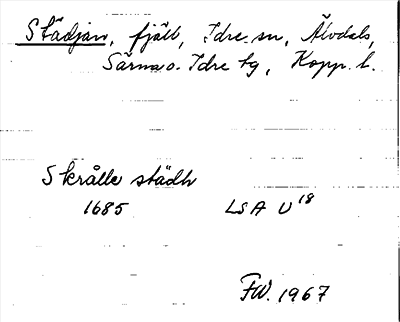 Städjan, fjäll, Idre sn, Älvdals,
Särna o. Idre tg, Kopp. l.
Skrålle städh
1685 LSA U 18
FW. 1967